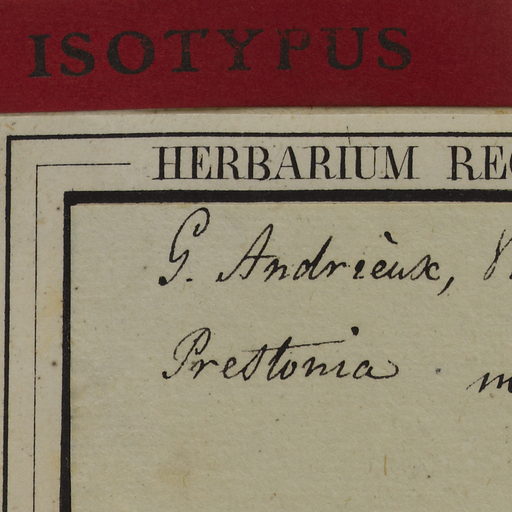 ISOTYPUS
HERBARIUM
G. Andrièux,
Prestonia